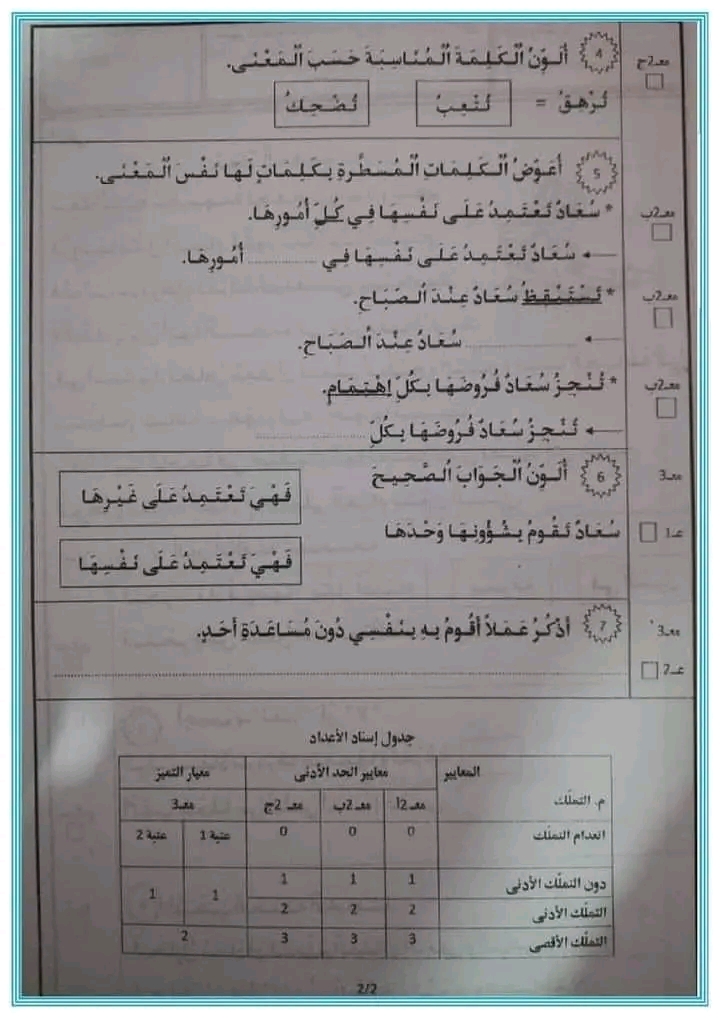 معـ2ج
4 أُلَوِّنُ الْكَلِمَةَ الْمُنَاسِبَةَ حَسَبَ الْمَعْنَى.
تُرْهِقُ = تُتْعِبُ تُضْحِكُ
5 أُعَوِّضُ الْكَلِمَاتِ الْمُسَطَّرةِ بِكَلِمَاتٍ لَهَا نَفْسَ الْمَعْنَى.
معـ2ب * سُعَادُ تَعْتَمِدُ عَلَى نَفْسِهَا فِي كُلِّ أُمُورِهَا.
سُعَادُ تَعْتَمِدُ عَلَى نَفْسِهَا فِي ............ أُمُورِهَا.
معـ2ب * تَسْتَيْقِظُ سُعَادُ عِنْدَ الصَّبَاحِ.
.................... سُعَادُ عِنْدَ الصَّبَاحِ.
معـ2ب * تُنْجِزُ سُعَادُ فُرُوضَهَا بِكُلِّ اِهْتِمَامٍ.
تُنْجِزُ سُعَادُ فُرُوضَهَا بِكُلِّ ....................
معـ3 6 أُلَوِّنُ الْجَوَابَ الصَّحِيحَ
فَهْيَ تَعْتَمِدُ عَلَى غَيْرِهَا
عـ1 سُعَادُ تَقُومُ بِشُؤُونِهَا وَحْدَهَا
فَهْيَ تَعْتَمِدُ عَلَى نَفْسِهَا
معـ3 7 أَذْكُرُ عَمَلاً أَقُومُ بِهِ بِنَفْسِي دُونَ مُسَاعَدَةِ أَحَدٍ.
عـ2 ................................................
جدول إسناد الأعداد
المعايير معايير الحد الأدنى معيار التميز
م. التملّك معـ2أ معـ2ب معـ 2ج معـ3
انعدام التملّك 0 0 0 عتبة 1 عتبة 2
دون التملّك الأدنى 1 1 1 1 1
التملّك الأدنى 2 2 2
التملّك الأقصى 3 3 3 2
2/2